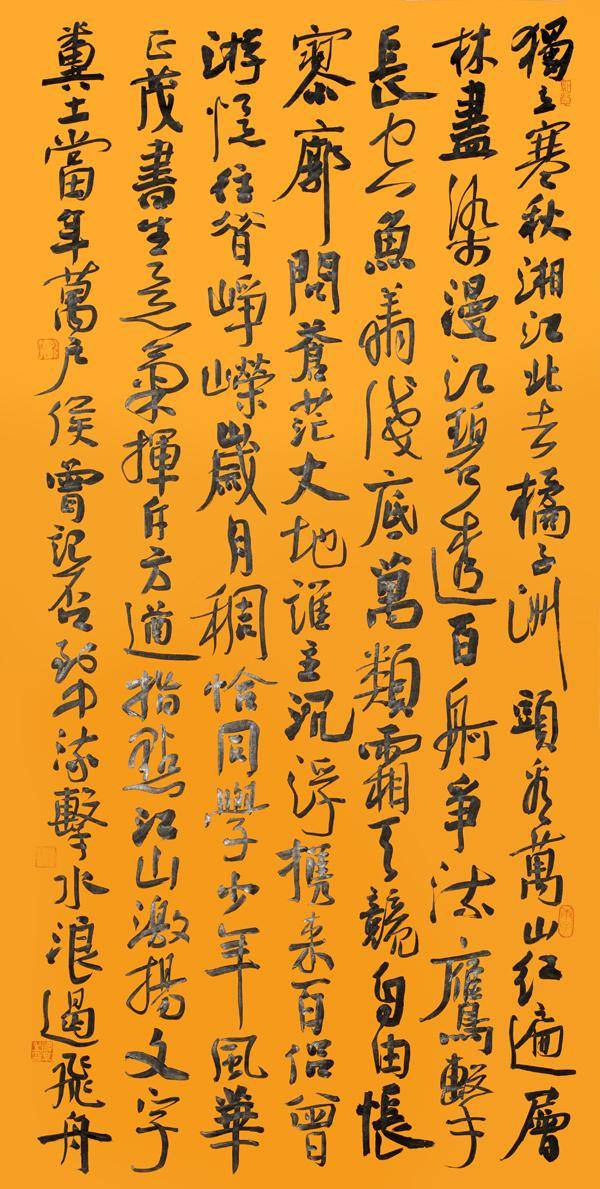 獨立寒秋湘江北去橘子洲頭看萬山紅遍層
林盡染漫江碧透百舸爭流鷹擊
長空魚翔淺底萬類霜天競自由悵
寥廓問蒼茫大地誰主沉浮携來百侶曾
游憶往昔崢嶸歲月稠恰同學少年風華
正茂書生意氣揮斥方遒指點江山激揚文字
糞土當年萬戶侯曾記否到中流擊水浪遏飛舟